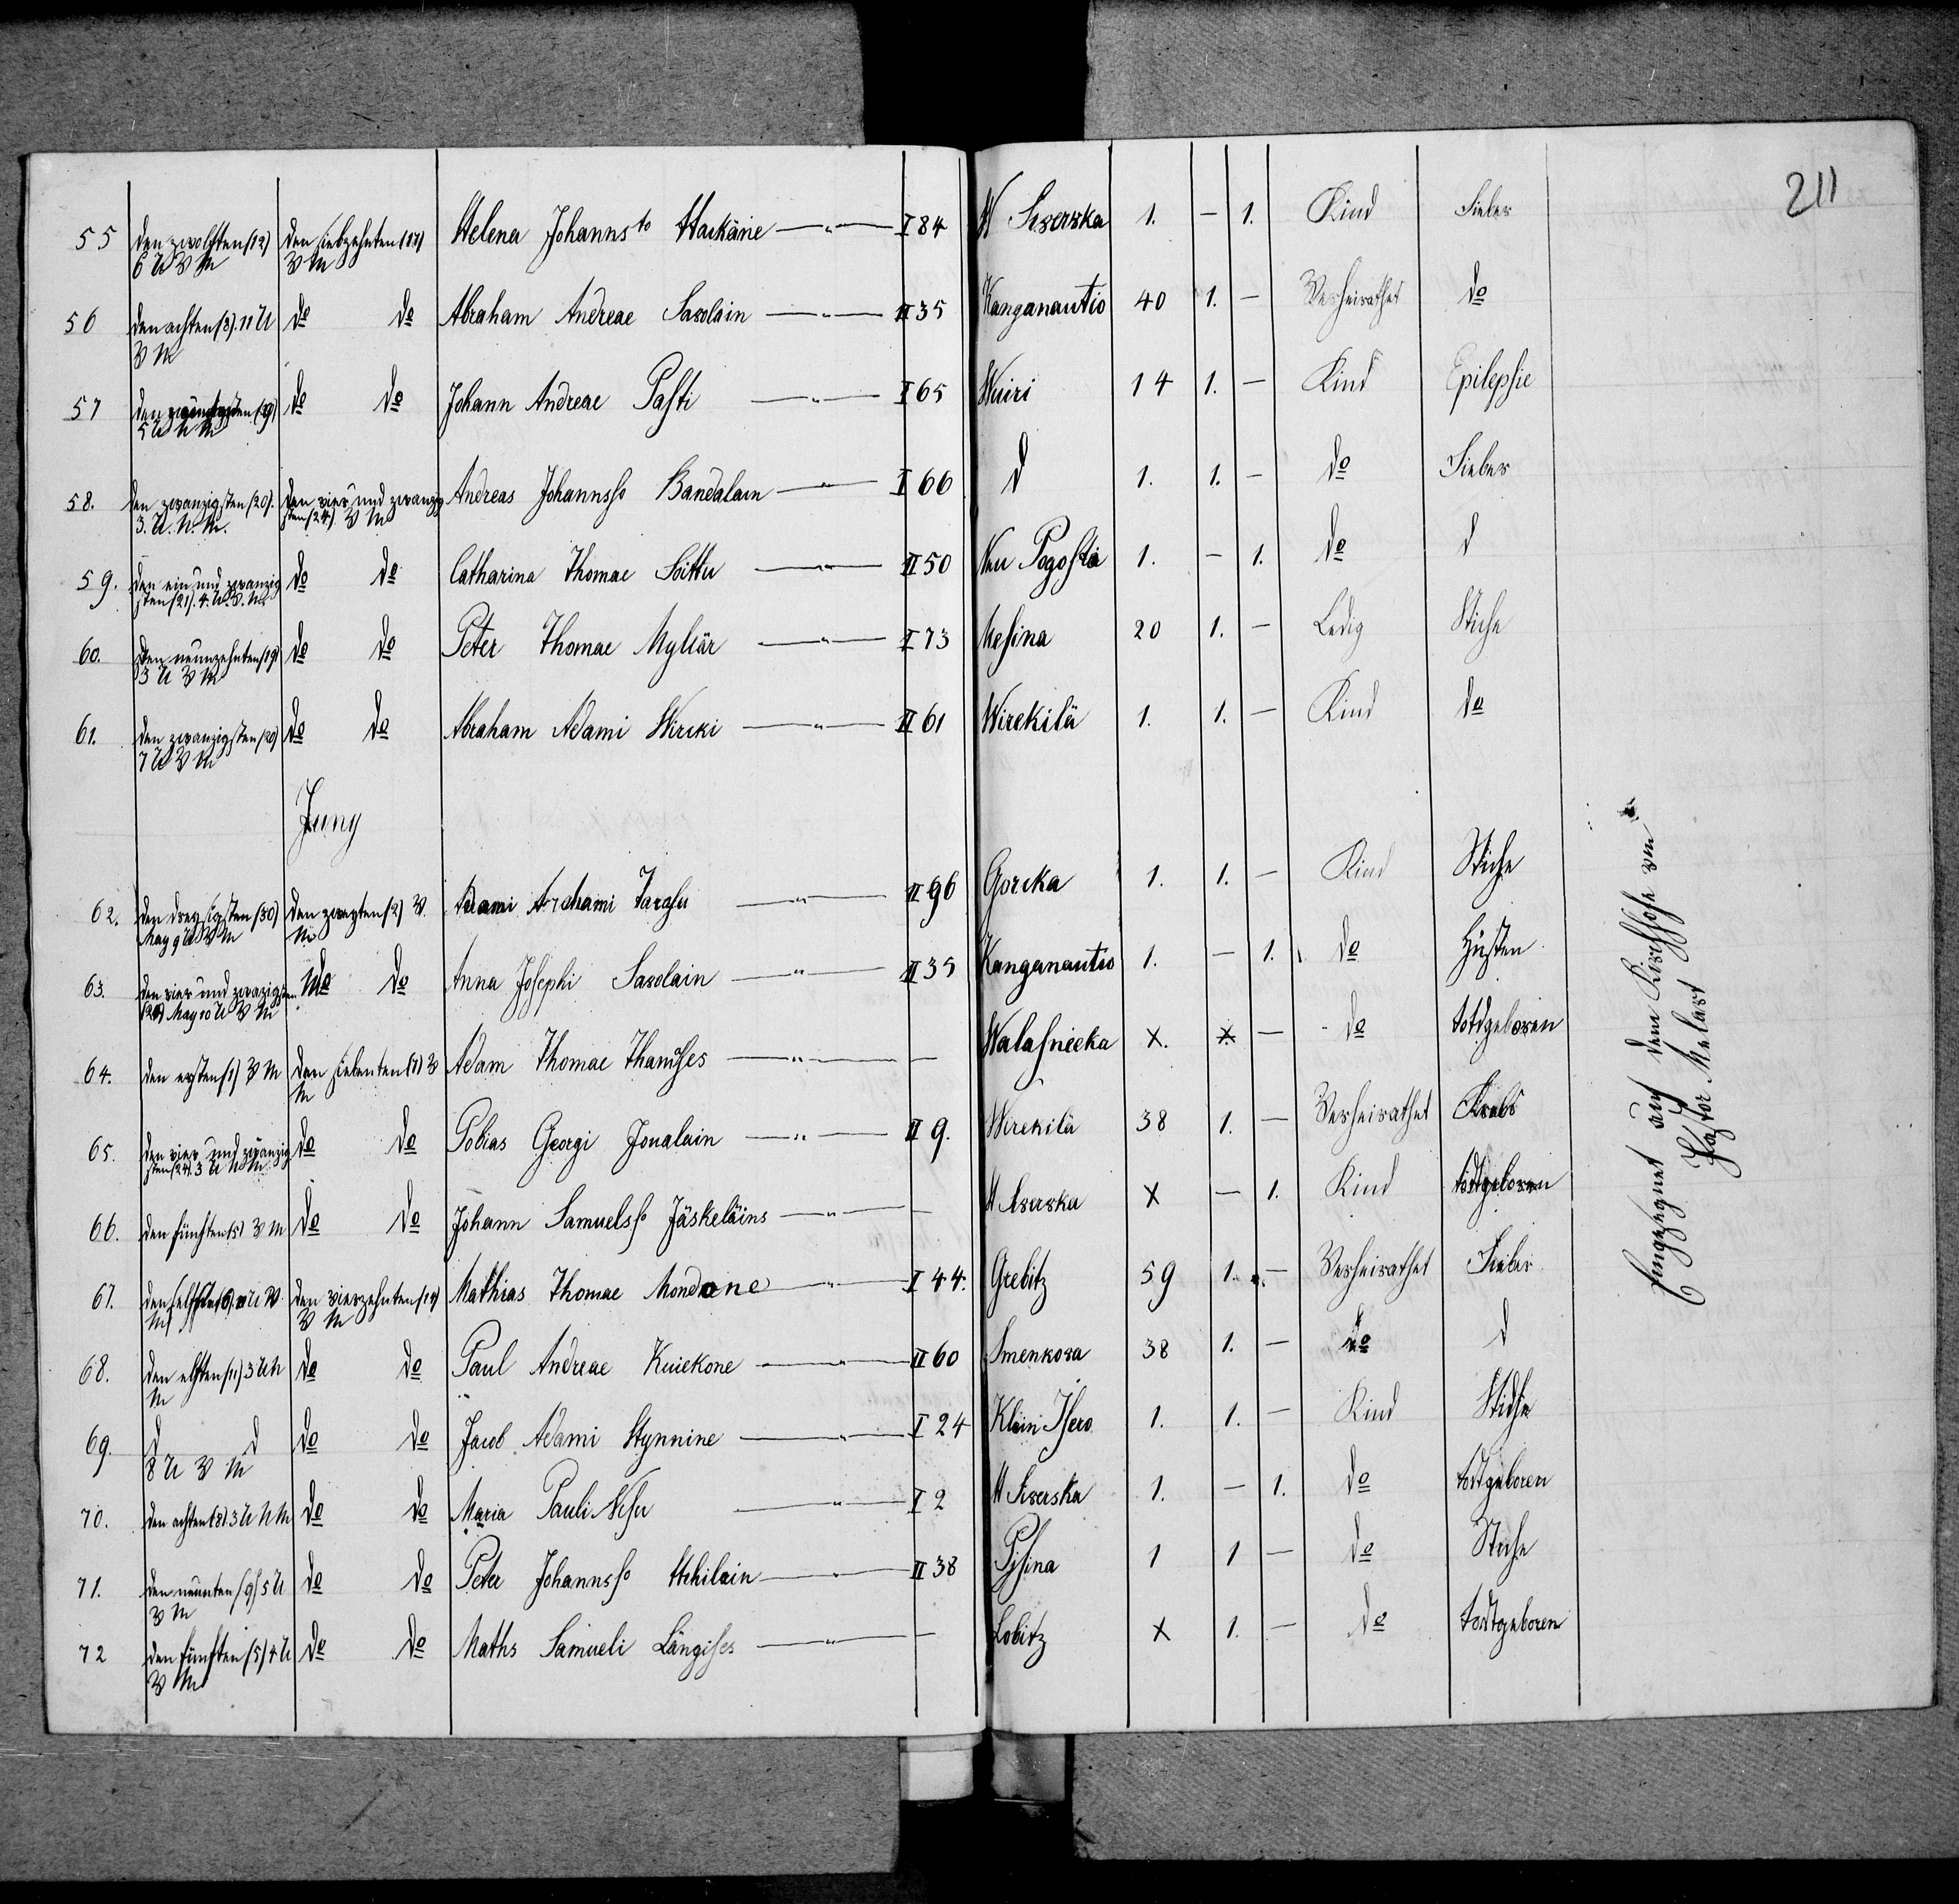 211
55 den zwolften (12) den siebzehnten (17) Helena Johanns to Haikäine — " — I 84 W Siwerska 1. — 1. Kind Fieber
6 U V M V M
56 den achten (8). 11 U do do Abraham Andreae Sawolain — " — II 35 Kanganautio 40 1. — Verheirathet do
V M
57 den do do Johann Andreae Pasti — " — I 65 Wuiri 14 1. — Kind Epilepsie
5 U N M
58. den zwanzigsten (20). den vier und zwanzig Andreas Johannsso Bandalain — " — I 66 d 1. 1. — do Fieber
3. U. N. M. sten (24) V M
59. den ein und zwanzig do do Catharina Thomae Soittu — " — II 50 Neu Pogosta 1. — 1. do d
sten (21). 4. U. V. M.
60. den neunzehnten (19) do do Peter Thomae Myllär — " — I 73 Mesina 20 1. — Ledig Stiche
3 U V M
61. den zwanzigsten (20) do do Abraham Adami Wirki — " — II 61 Wirekilä 1. 1. — Kind do
7 U V M
Juny
62. den dreysigsten (30) den zweyten (2) V. Adami Tarasu — " — II 96 Gorka 1. 1. — Kind Stiche
May 9 U V M M
63. den vier und zwazigsten do do Anna Josephi Sawolain — " — II 35 Kanganautio 1. — 1. do Husten
May 10 U V M
64. den ersten (1) V M den siebenten (7) V Adam Thomae — " — — Walasnicka X. X — do todtgeboren
M
65. den vier und zwanzig do do Tobias Georgi Joualain — " — II 9. Wirekilä 38 1. — Verheirathet Krebs
sten (24) 3 U N M
66. den fünften (5) V M do do Johann Samuelsso Jäskeläins — " — — W Siwerska X — 1. Kind todtgeboren
67. den U V den vierzehnten (14) Mathias Thomae Mondone — " — I 44. Grebitz 59 1. — Verheirathet Fieber
M V M
68. den elften (11) 3 U N do do Paul Andreae Kuiekone — " — II 60 Smenkova 38 1. — do d
M
69. d d do do Jacob Adami Hynnine — " — I 24 Klein Isero 1. 1. — Kind Stiche
8 U V M
70. den achten (8). 3 U N M do do Maria Pauli — " — I 2 W Siwerska 1. — 1. do todtgeboren
71. den neunten (9) 5 U do do Peter Johannsso — " — II 38 Pisina 1 1 — do Stiche
V M
72 den fünften (5) 4 U do do Maths Samueli — " — — Lobitz X 1. — do todtgeboren
V M
Eingesegnet auf dem Kirchhofe von
Pastor Melart